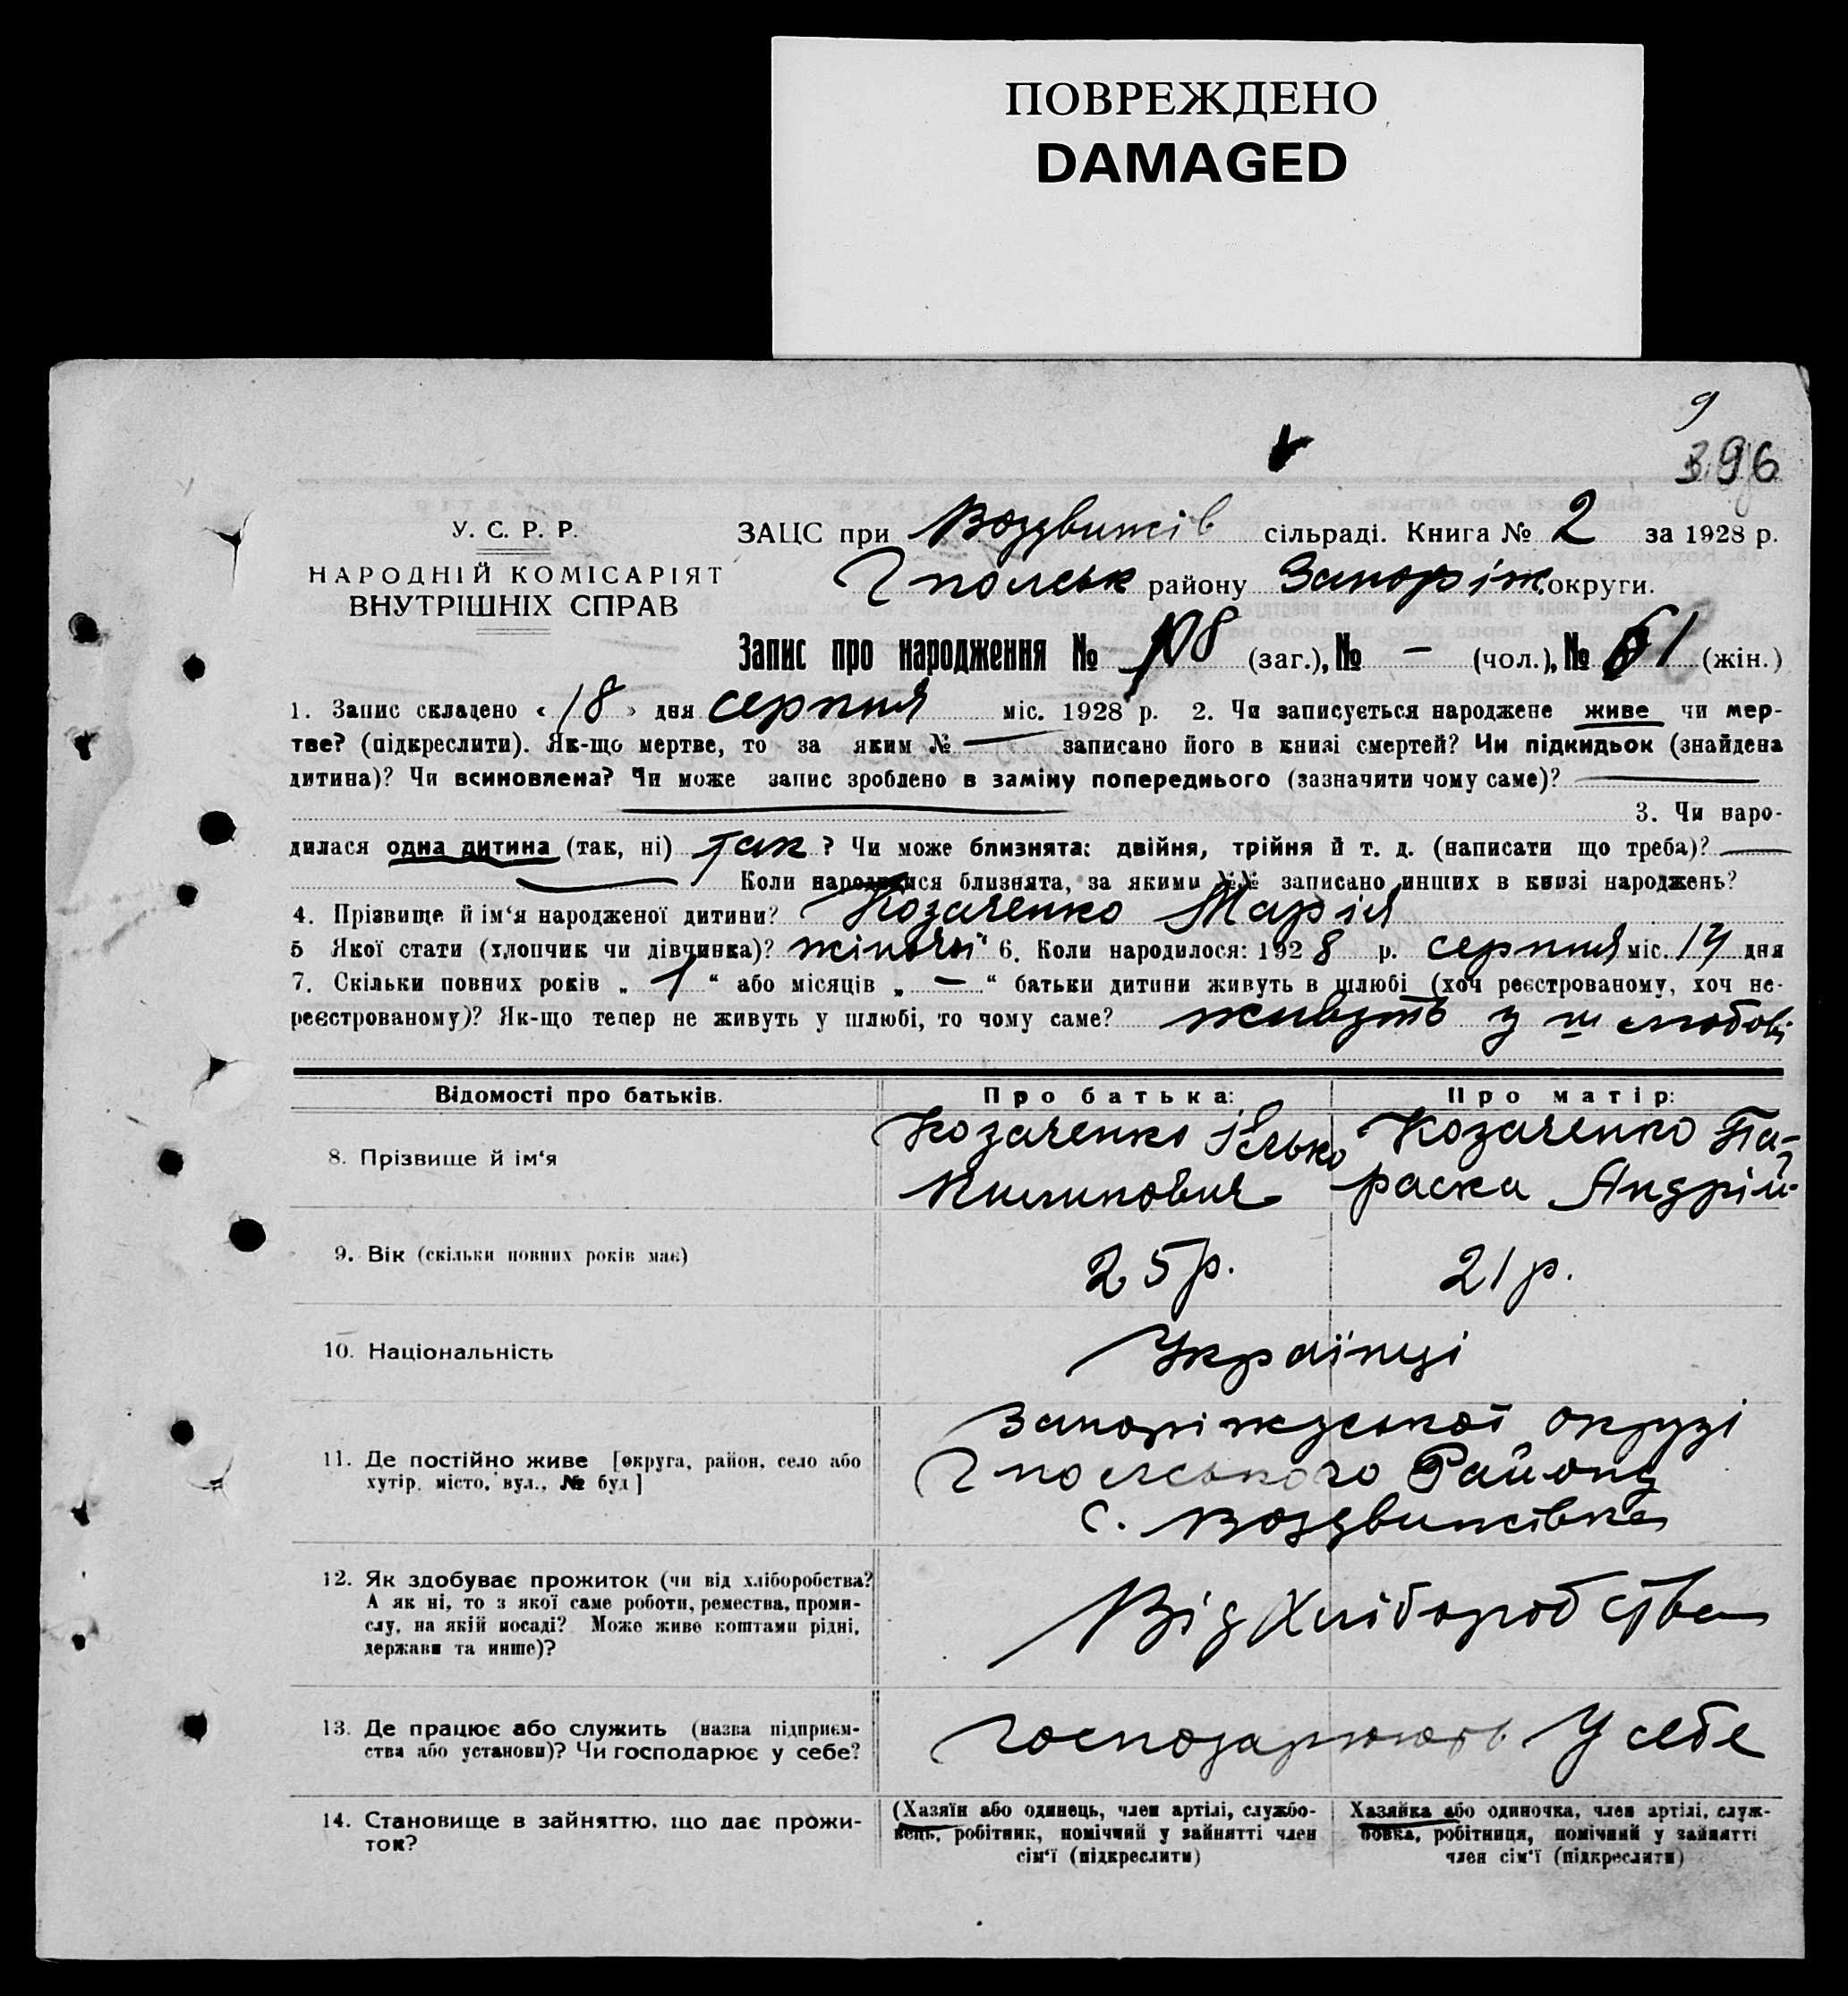 ПОВРЕЖДЕНО
DAMAGED
9
396
У. С. Р. Р.
НАРОДНІЙ КОМІСАРІЯТ
ВНУТРІШНІХ СПРАВ
ЗАЦС при Воздвижів сільраді. Книга № 2 за 1928 р.
Гполськ району Запоріж округи.
Запис про народження № 108 (заг.), № – (чол.), № 61 (жін.)
1. Запис складено « 18 » дня серпня міс. 1928 р. 2. Чи записується народжене живе чи мер-
тве? (підкреслити). Як-що мертве, то за яким № — записано його в книзі смертей? Чи підкидьок (знайдена
дитина)? Чи всиновлена? Чи може запис зроблено в заміну попереднього (зазначити чому саме)? —
3. Чи наро-
дилася одна дитина (так, ні) так ? Чи може близнята: двійня, трійня й т. д. (написати що треба)? —
Коли народилися близнята, за якими №№ записано инших в книзі народжень?
4. Прізвище й ім‘я народженої дитини? Козаченко Марія
5 Якої стати (хлопчик чи дівчинка)? жіночої 6. Коли народилося: 1928 р. серпня міс. 14 дня
7. Скільки повних років „ 1 “ або місяців „ — “ батьки дитини живуть в шлюбі (хоч реєстрованому, хоч не-
реєстрованому)? Як-що тепер не живуть у шлюбі, то чому саме? живуть у шлюбові
Відомості про батьків. Про батька: Про матір:
8. Прізвище й ім‘я
Козаченко Ілько
Козаченко Па-
раска Андрій-
9. Вік (скільки повних років має) 25 р. 21 р.
10. Національність Українці
11. Де постійно живе [округа, район, село або
хутір, місто, вул., № буд]
Запоріжської окрузі
Гпольського Району
с. Воздвижівка
12. Як здобуває прожиток (чи від хліборобства?
А як ні, то з якої саме роботи, ремества, проми-
слу, на якій посаді? Може живе коштами рідні,
держави та инше)?
Від Хліборобства
13. Де працює або служить (назва підприєм-
ства або установи)? Чи господарює у себе?
Господарюють У себе
14. Становище в зайняттю, що дає прожи-
ток?
(Хазяїн або одинець, член артілі, службо-
вець, робітник, помічний у зайнятті член
сім'ї (підкреслити)
Хазяйка або одиночка, член артілі, служ-
бовка, робітниця, помічний у зайнятті
член сім'ї (підкреслити)